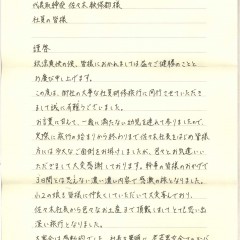 代表取締役 佐々木敏修郎様
社員の皆様
謹啓
秋涼爽快の候、皆様におかれましては益々ご健勝のことと
お慶び申し上げます。
この度は、御社の大事な社員研修旅行に同行させていただき
まして誠に有難うございました。
お言葉に甘えて、一歳に満たない幼児を連れて参りましたので、
実際に旅行の始まりから終わりまで佐々木社長をはじめ皆様
方には多大なご面倒をお掛けしましたが、色々とお気遣いい
ただきまして大変感謝しております。幹事の皆様のおかげで
3日間とは思えない濃い濃い内容で感激の旅となりました。
小2の娘も皆様に仲良くしていただいて大変喜んでおり、
佐々木社長から色々なお土産まで頂戴しましてとても思い出
深い旅行となりました。